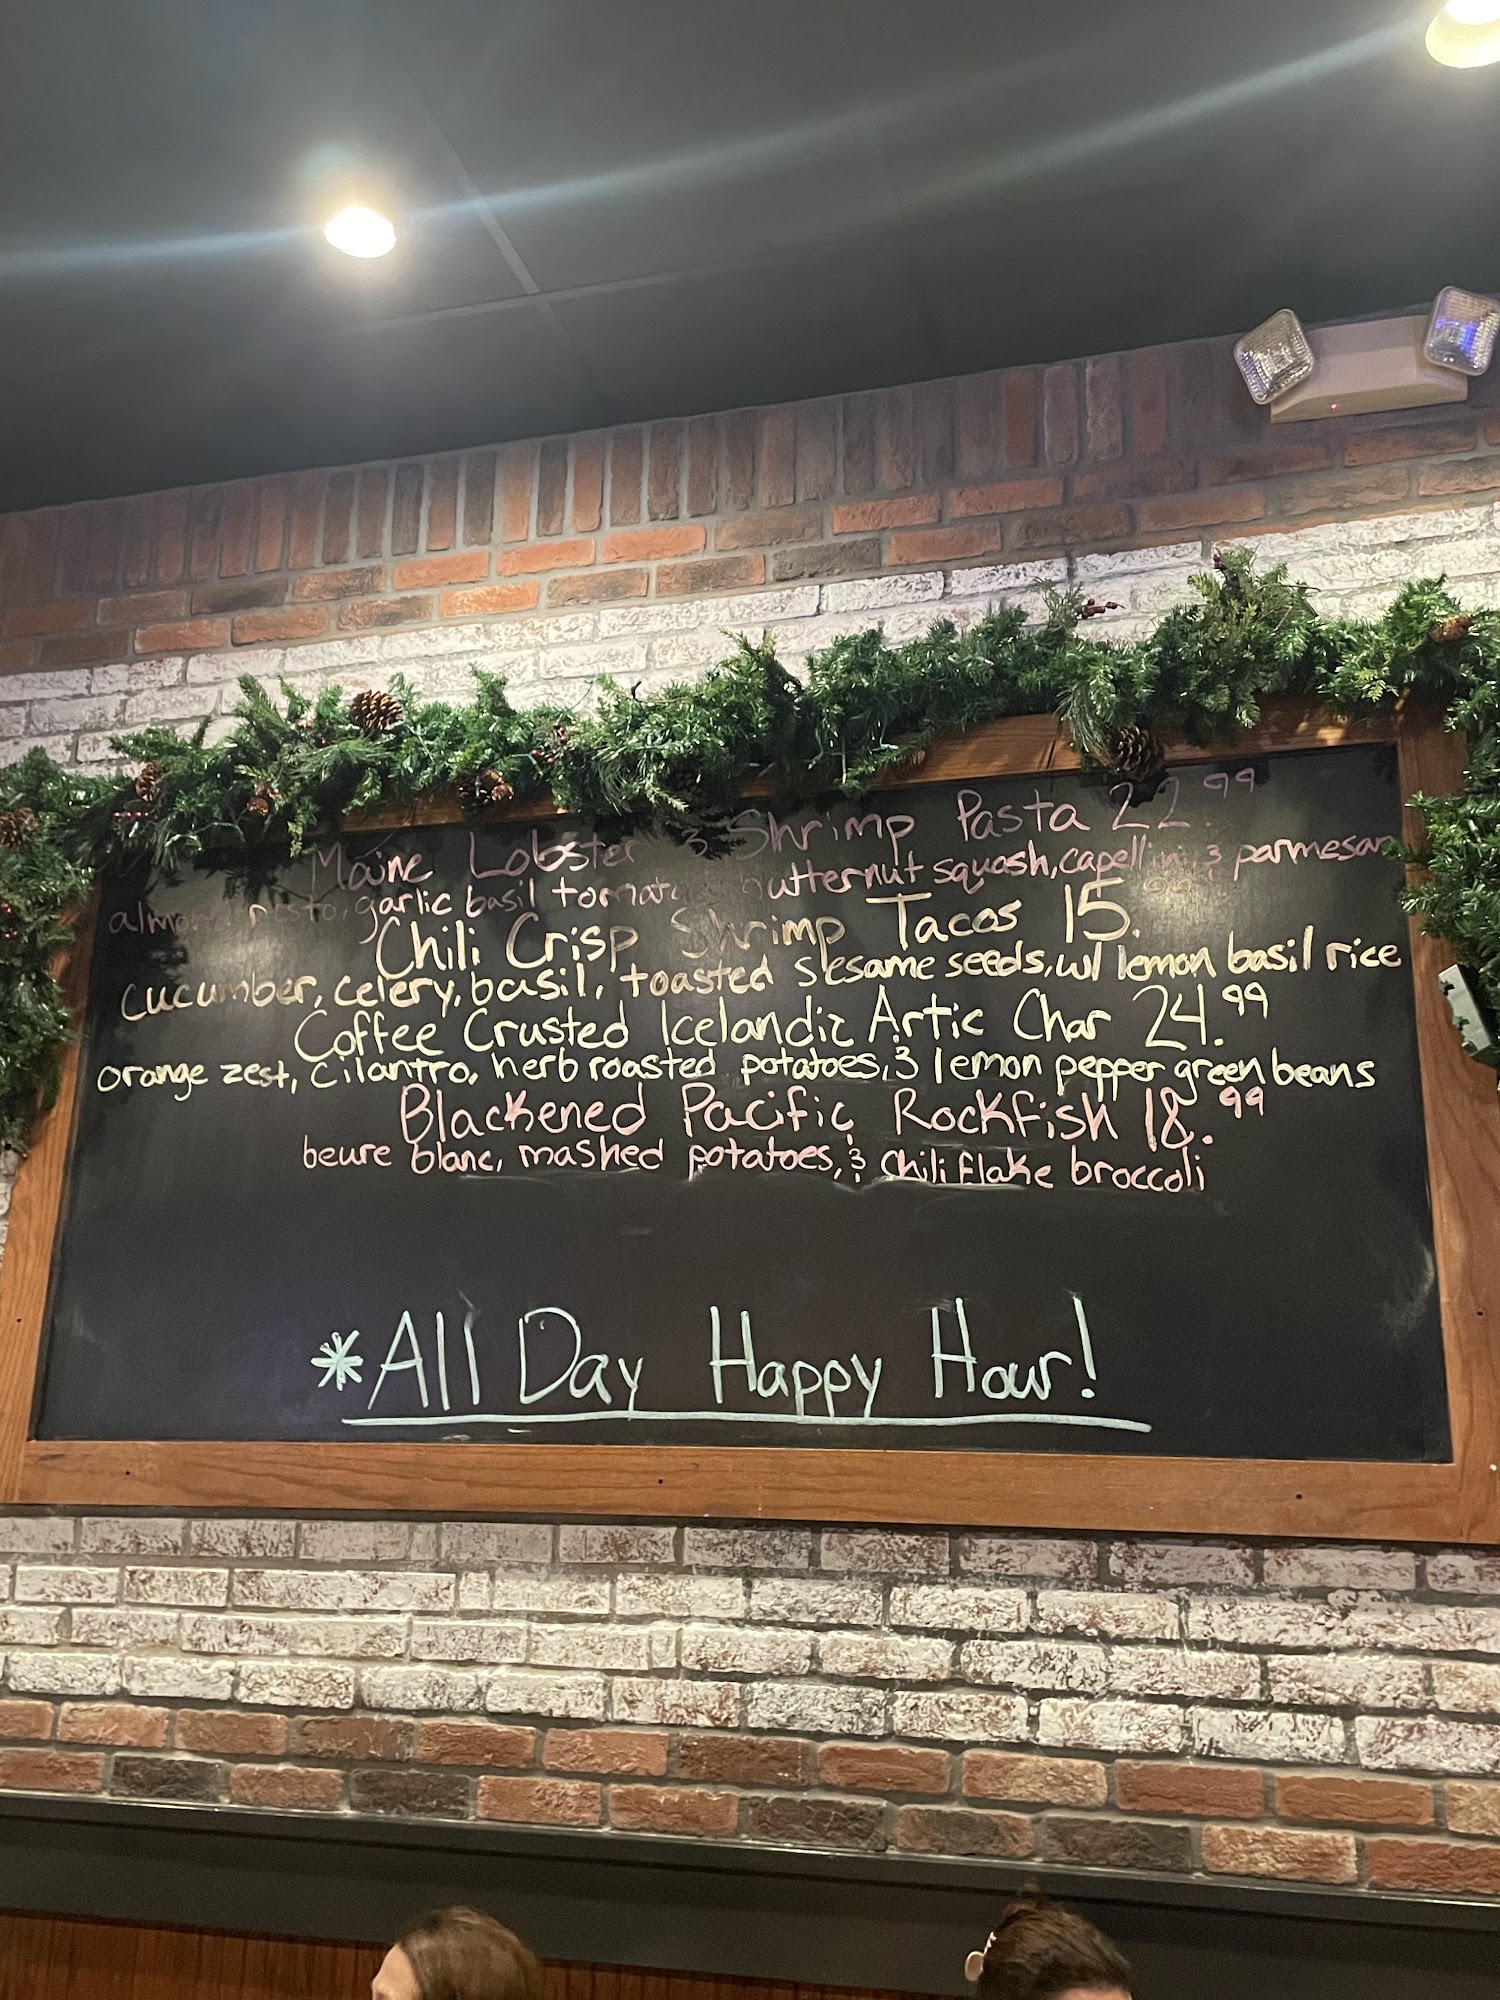 Maine Lobster & Shrimp Pasta 22.99
almond pesto, garlic basil tomato butternut squash, capellini & parmesan
Chili Crisp Shrimp Tacos 15.99
cucumber, celery, basil, toasted sesame seeds, w/ lemon basil rice
Coffee Crusted Icelandic Artic Char 24.99
orange zest, cilantro, herb roasted potatoes, & lemon pepper green beans
Blackened Pacific Rockfish 18.99
beure blanc, mashed potatoes, & chili flake broccoli
*All Day Happy Hour!